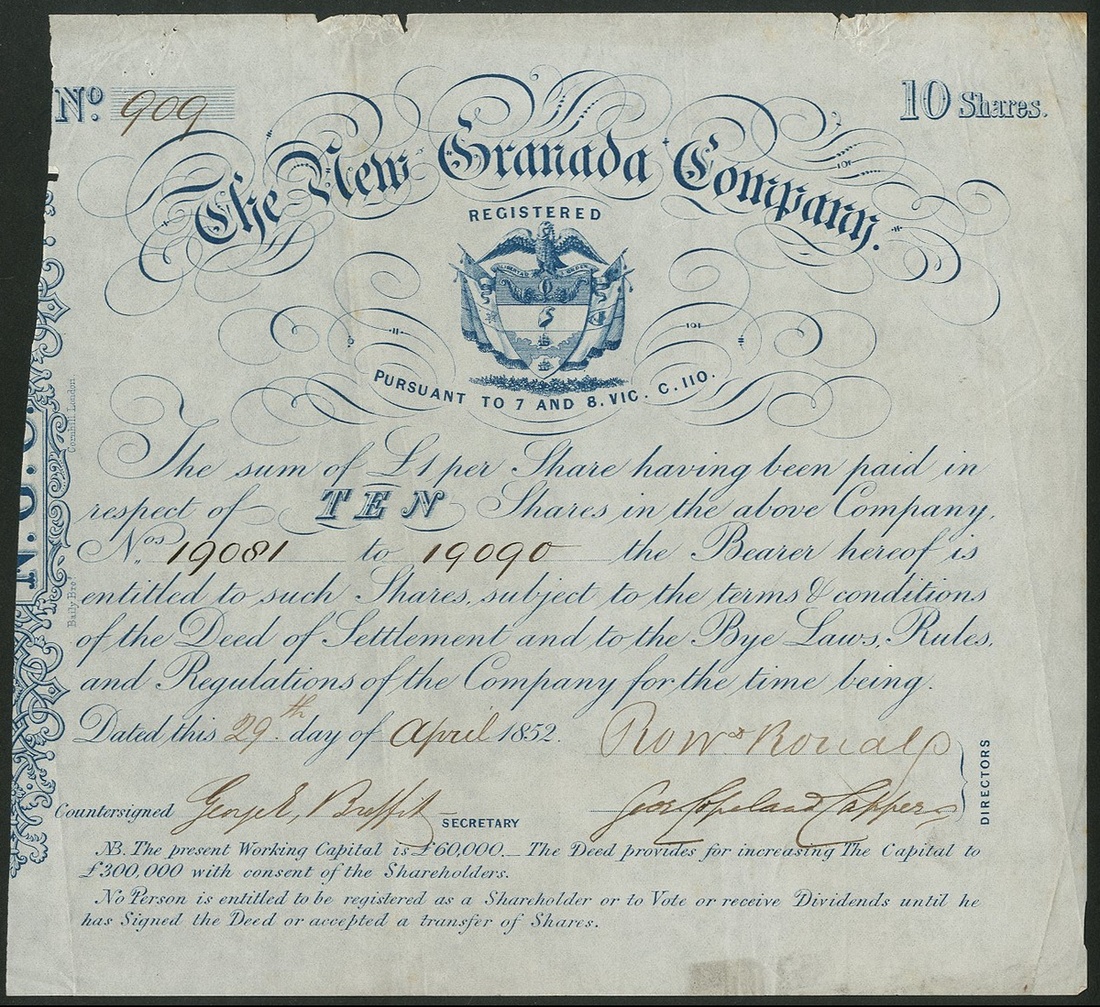 No. 909
10 Shares.
The New Granada Company.
REGISTERED
LIBERTAD Y ORDEN
PURSUANT TO 7 AND 8. VIC. C. 110.
N. G. C.
Cornhill, London.
Baily Bros.
The sum of £1 per Share having been paid in
respect of TEN Shares in the above Company,
Nos. 19081 to 19090 the Bearer hereof is
entitled to such Shares, subject to the terms & conditions
of the Deed of Settlement and to the Bye Laws, Rules,
and Regulations of the Company for the time being.
Dated this 29th day of April 1852.
Countersigned George E. SECRETARY
Geo: Copeland Capper
DIRECTORS
NB. The present Working Capital is £60,000._ The Deed provides for increasing The Capital to
£300,000 with consent of the Shareholders.
No Person is entitled to be registered as a Shareholder or to Vote or receive Dividends until he
has Signed the Deed or accepted a transfer of Shares.